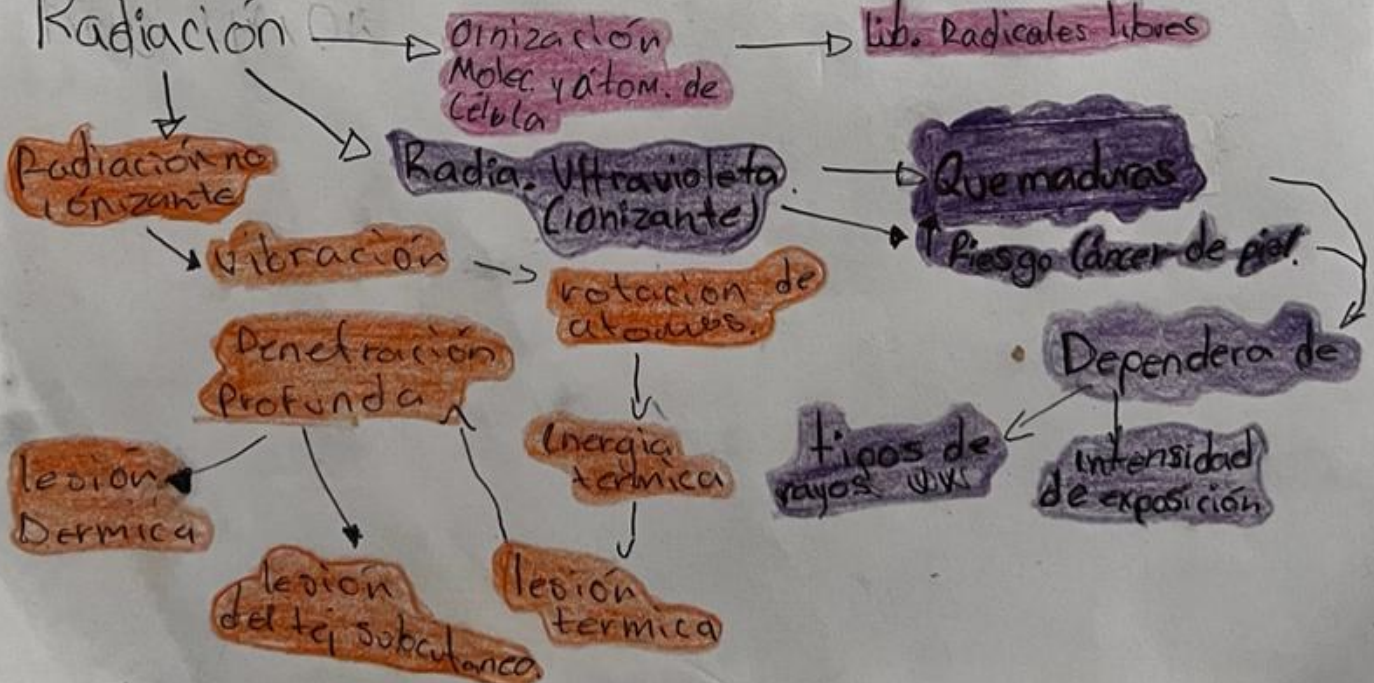 Radiación
Oinización
Molec. y átom. de
Célula
Lib. Radicales libres
Radiación no
ionizante
Radia. Ultravioleta.
(ionizante)
Quemaduras
↑ Riesgo Cáncer de piel.
vibración
rotación de
atomos.
Penetración
Profunda
Dependera de
Energia
termica
tipos de
rayos
intensidad
de exposición
lesión
Dermica
lesión
del tej subcutaneo.
lesión
termica